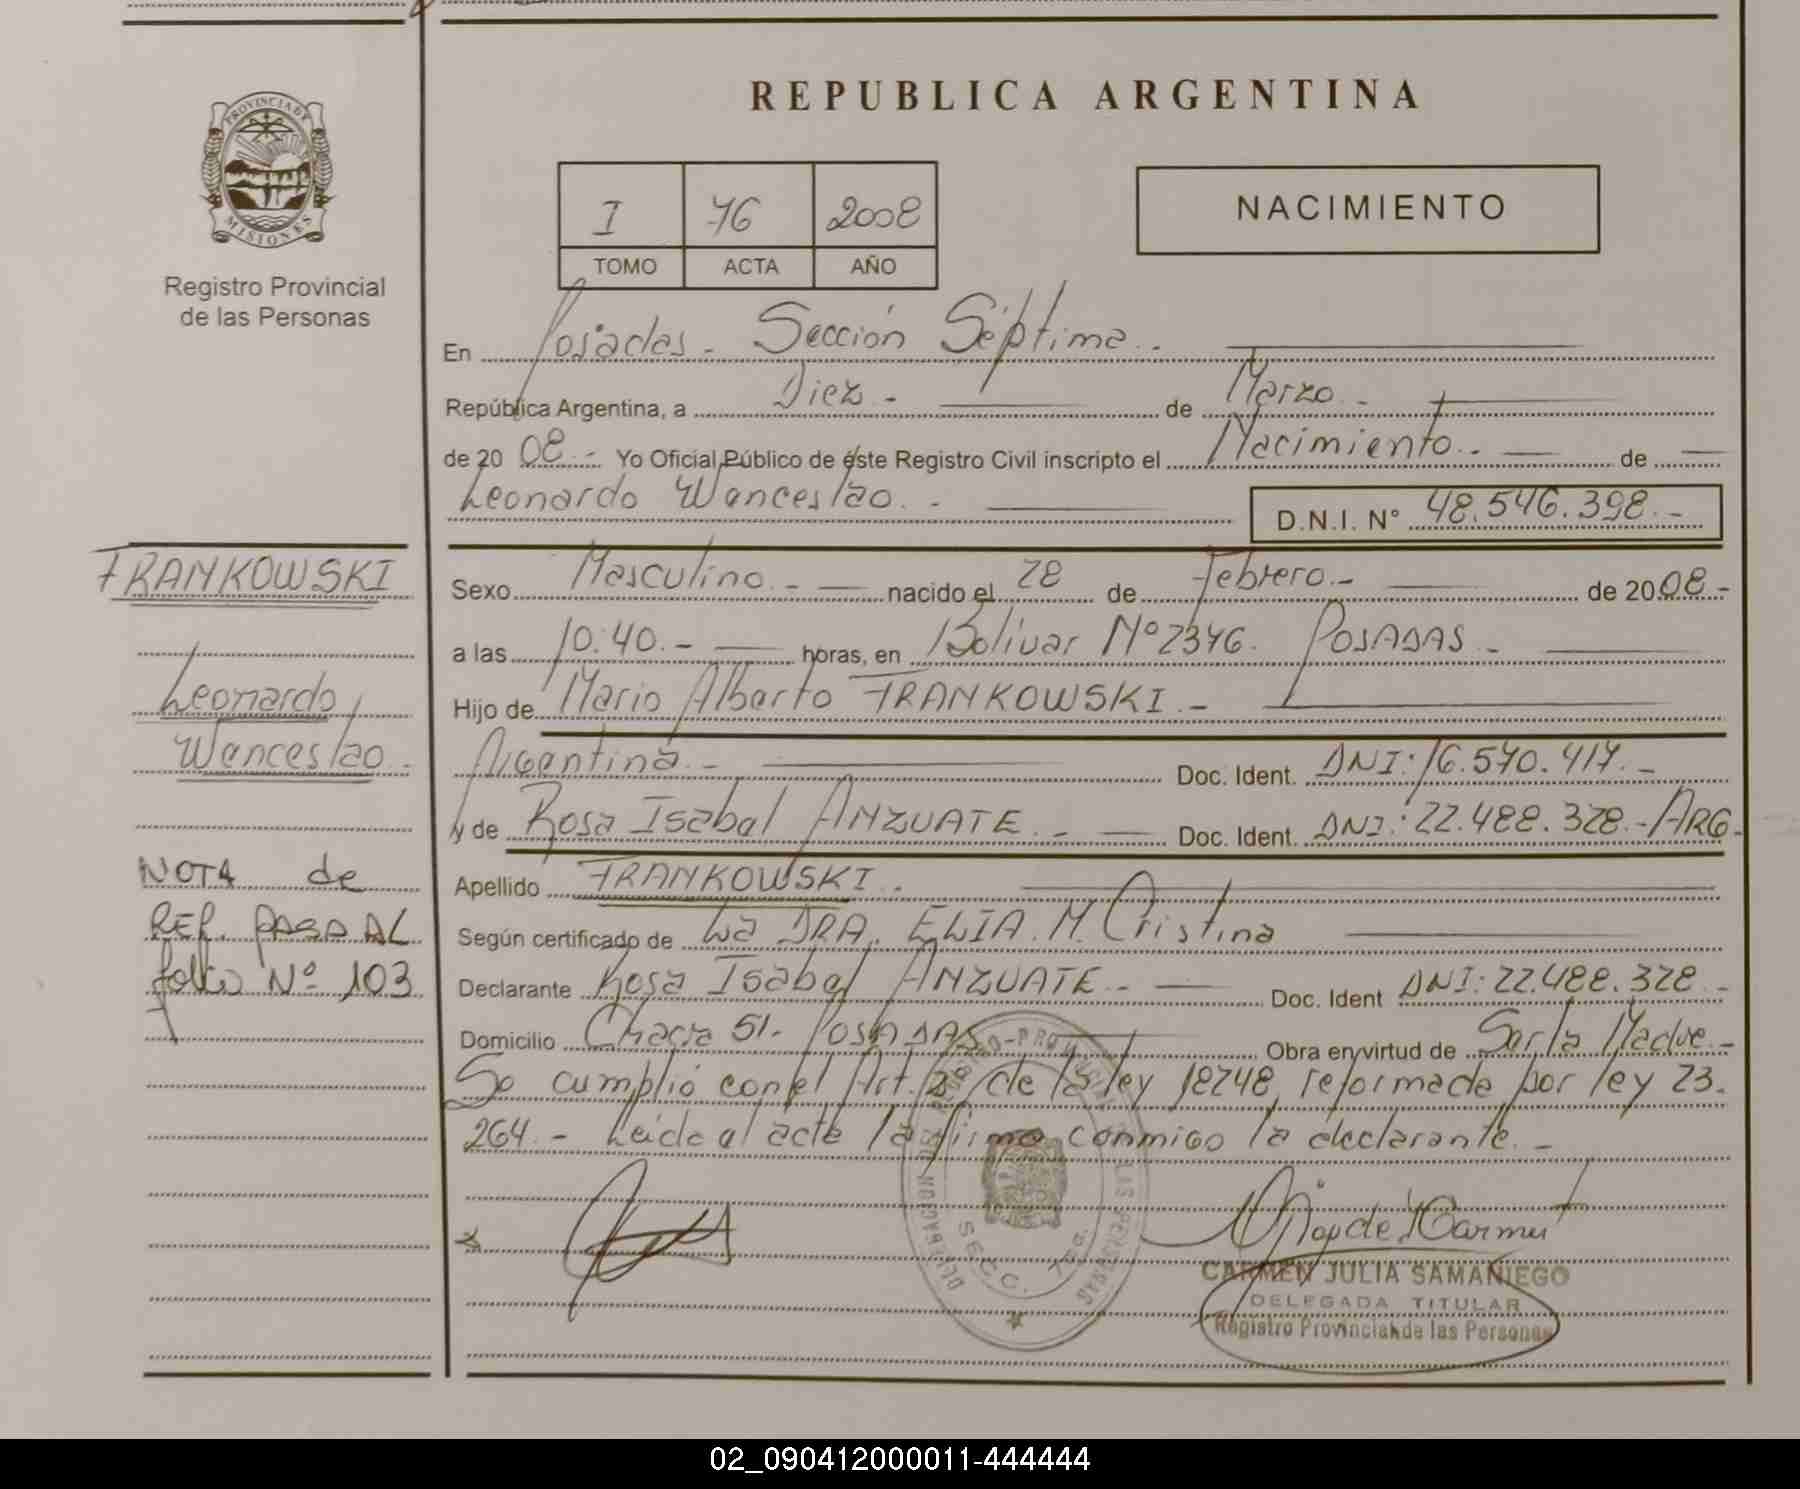 REPUBLICA ARGENTINA
PROVINCIA DE
MISIONES
Registro Provincial
de las Personas
I 76 2008
TOMO ACTA AÑO
NACIMIENTO
En Posadas - Sección Séptima.-
República Argentina, a Diez.- de Marzo.-
de 2008.- Yo Oficial Público de éste Registro Civil inscripto el Nacimiento.- de
Leonardo Wenceslao.-
D.N.I. N° 48.546.398.-
FRANKOWSKI
Leonardo
Wenceslao.-
NOTA de
REF. PASA AL
folio Nº 103
Sexo Masculino.- nacido el 28 de Febrero.- de 2008.-
a las 10:40.- horas, en Bolívar Nº 2376. POSADAS.-
Hijo de Mario Alberto FRANKOWSKI.-
Argentina.- Doc. Ident. DNI: 16.570.417.-
y de Rosa Isabel ANZUATE.- Doc. Ident. DNI: 22.488.328.-ARG.
Apellido FRANKOWSKI.
Según certificado de La DRA. ELIA. M. Cristina
Declarante Rosa Isabel ANZUATE.- Doc. Ident DNI: 22.488.328.-
Domicilio Chacra 51- POSADAS Obra en virtud de Ser la Madre.-
Se cumplió con el Art. 2º de la ley 18248, reformada por ley 23.
264.- Leída el acta la firma conmigo la declarante.-
CARMEN JULIA SAMANIEGO
DELEGADA TITULAR
Registro Provincial de las Personas
DELEGACION DEL REGISTRO PROVINCIAL DE LAS PERSONAS
SECC. 7ma.
02_090412000011-444444